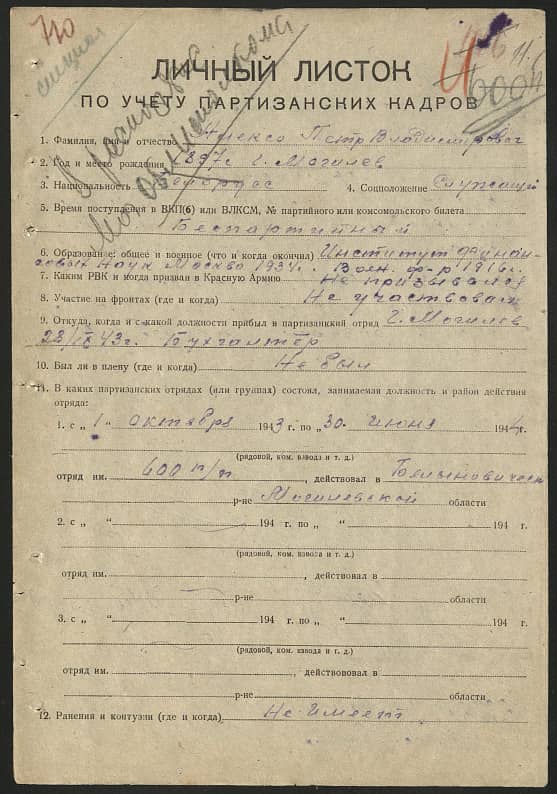 710
ЛИЧНЫЙ ЛИСТОК
ПО УЧЕТУ ПАРТИЗАНСКИХ КАДРОВ
1. Фамилия, имя и отчество Петр Владимирович
2. Год и место рождения 1897 г. г. Могилев
3. Национальность Белорус 4. Соцположение Служащий
5. Время поступления в ВКП(б) или ВЛКСМ, № партийного или комсомольского билета
Беспартийный
6. Образование: общее и военное (что и когда окончил) Институт финан-
совых наук Москва 1934г. 1916г.
7. Каким РВК и когда призван в Красную Армию Не призывался
8. Участие на фронтах (где и когда) Не участвовал
9. Откуда, когда и с какой должности прибыл в партизанкий отряд г. Могилев
43г. Бухгалтер
10. Был ли в плену (где и когда) Не был
11. В каких партизанских отрядах (или группах) состоял, занимаемая должность и район действия
отряда:
1. с „ 1 “ октября 1943 г. по „ 30 “ июня 1944 г.
(рядовой, ком. взвода и т. д.)
отряд им. 600 п/п, действовал в Белыничск
р-не Могилевской области
2. с „ “ 194 г. по „ “ 194 г.
(рядовой, ком. взвода и т. д.)
отряд им. , действовал в
р-не области
3. с „ “ 194 г. по „ “ 194 г.
(рядовой, ком. взвода и т. д.)
отряд им. , действововал в
р-не области
12. Ранения и контузии (где и когда) Не имеет